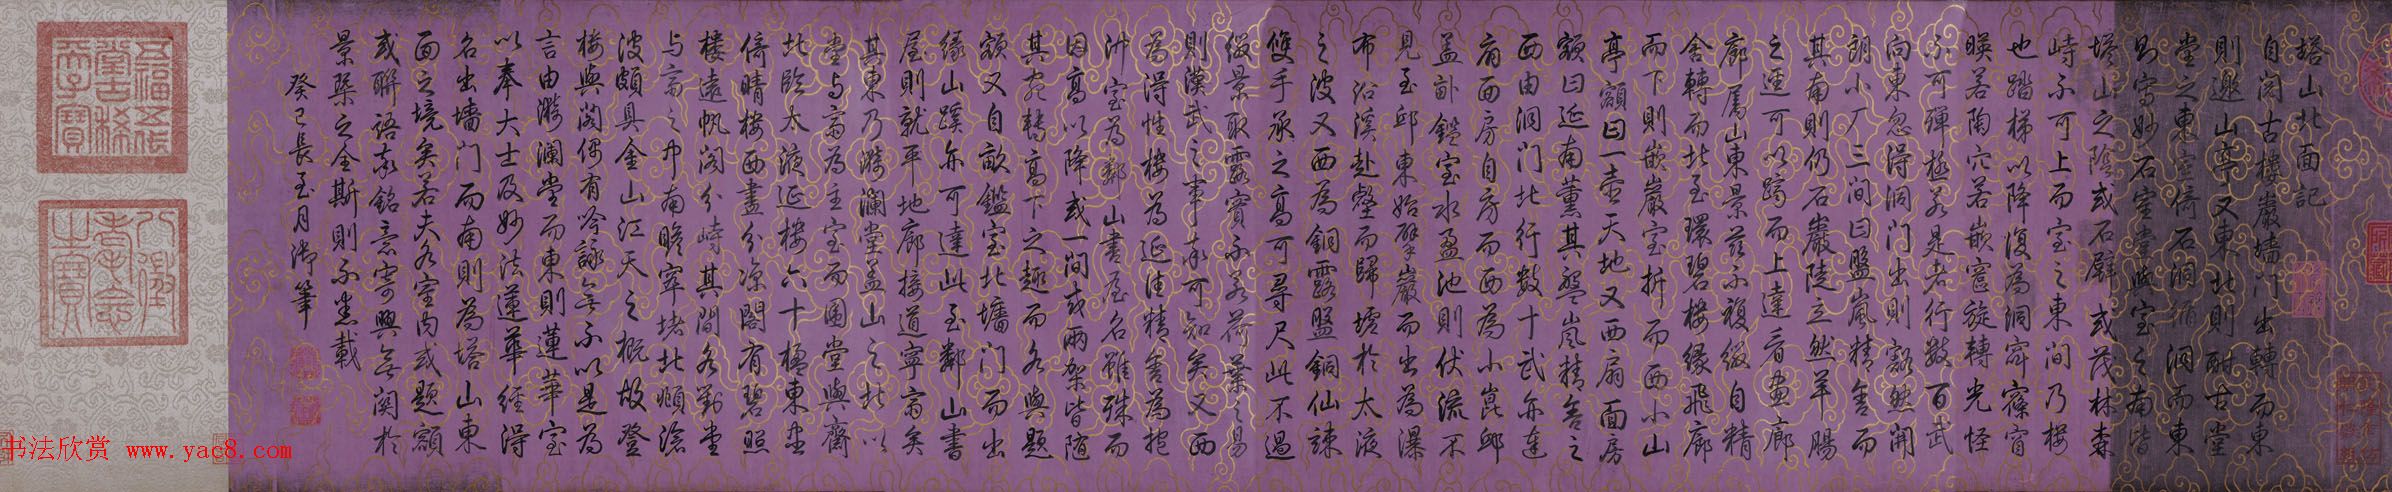 塔山北面記
自閱古樓巖墻門出轉而東
則邀山亭又東北則酣古堂
堂之東室倚石洞循洞而東
則寫妙石室堂與室之南皆
塔山之陰或石壁或茂林森
峙不可上而室之東間乃樓
也踏梯以降復為洞窅窱窅
暎若陶穴若嵌窗旋轉光怪
不可彈極若是者行數百武
向東忽得洞門出則豁然開
朗小厂三間曰盤嵐精舍而
其南則仍石巖陡立然羊腸
之逕可以躋而上達看畫廊
廊屬山東景茲不複綴自精
舍轉而北至環碧樓緣飛廊
而下則嵌巖室折而西小山
亭額曰一壺天地又西扇面房
額曰延南薰其盤嵐精舍之
西由洞門北行數十武亦達
扇面房自房而西為小崑邱
盖畝鑑室水盈池則伏流不
見至邱東始擘巖而出為瀑
布沿溪赴壑而歸墟於太液
之波又西為銅露盤銅仙竦
雙手承之高可尋尺此不過
綴景取露實不若荷葉之易
則漢武之事率可知矣又西
為得性樓為延佳精舍為抱
沖室為鄰山書屋名雖殊而
因高以降或一間或兩架皆随
其宛轉高下之趣而各與題
額又自畝鑑室北墻門而出
緣山蹊亦可達此至鄰山書
屋則就平地廊接道寧齋矣
其東乃漪瀾堂盖山之北以
堂與齋為主室而圍堂與齋
北臨太液延樓六十楹東盡
倚晴樓西盡分凉閣有碧照
樓遠帆閣分峙其間各對堂
與齋之中南瞻窣堵北頫滄
波頗具金山江天之概故登
樓與閣偶有吟詠無不以是為
言由漪瀾堂而東則蓮華室
以奉大士及妙法蓮華經得
名出墻門而南則為塔山東
面之境矣若夫各室内或題額
或聯語率銘意寄興無關於
景槩之全斯則不悉載
癸巳長至月御筆
五福五代堂古稀天子寶
八徵耄念之寶
书法欣赏 www.yac8.com